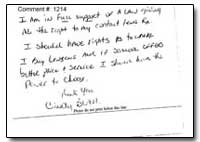 Comment #: 1214
I Am in Full support of A Law giving
Me the right to my contact lens Rx
I should have rights as to where
I Buy Lenses And if someone offers
better price & service I should have the
Power to Choose.
Thank You
Cindy
Please do not print below this line